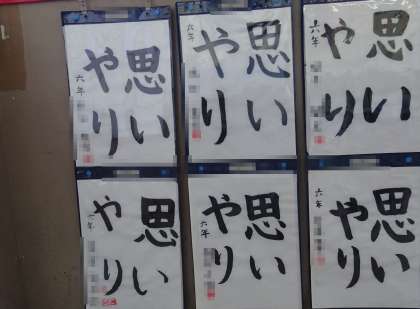 思い
やり
六年
思い
やり
六年
思い
やり
六年
思い
やり
六年
思い
やり
六年
思い
やり
六年